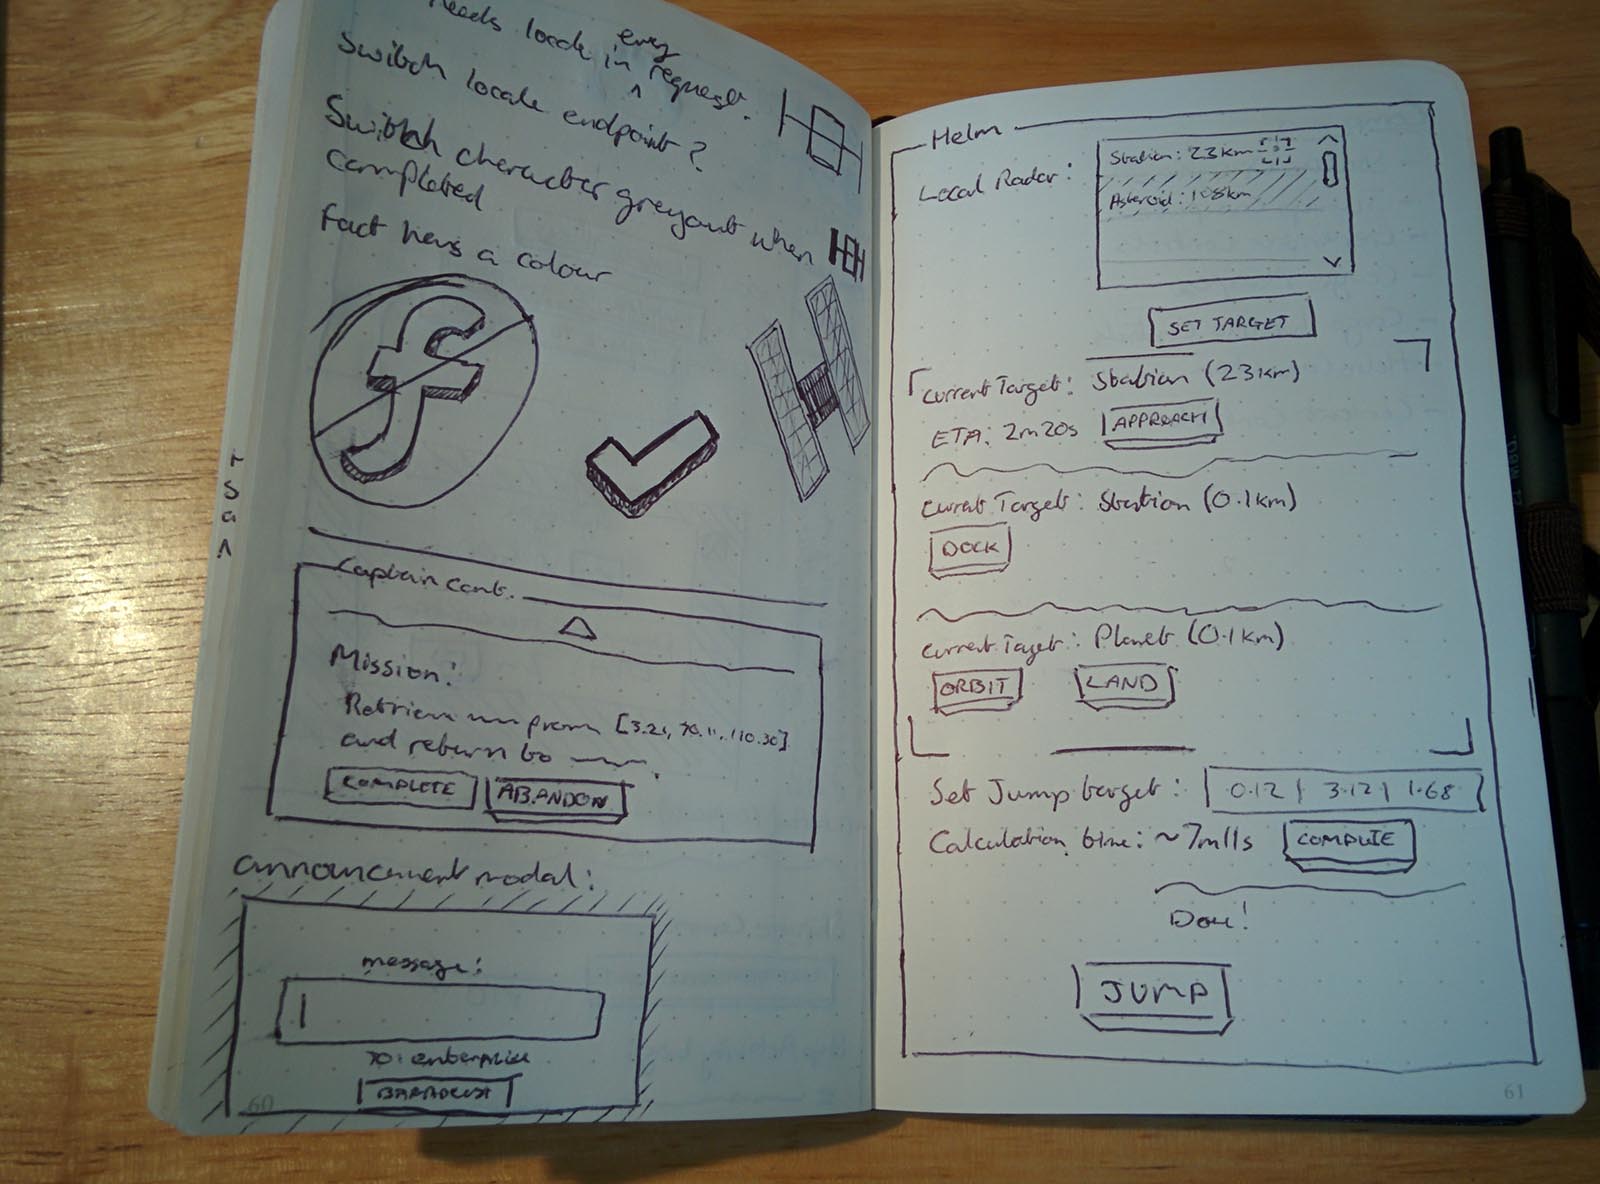 Needs locale in every request.
Switch locale endpoint?
Switch character greyout when
completed
Fact has a colour
f
Captain cont.
Mission:
Retrieve from [3.21, 70.11, 110.30]
and return to
COMPLETE ABANDON
announcement modal:
message:
TO: enterprise
BROADCAST
60
Helm
Local Radar:
Station: 23km
Asteroid: 108km
SET TARGET
Current Target: Station (23km)
ETA: 2m20s APPROACH
Current Target: Station (0.1km)
DOCK
Current Target: Planet (0.1km)
ORBIT LAND
Set Jump target: 0.12 | 3.12 | 1.68
Calculation time: ~7m11s COMPUTE
Done!
JUMP
61